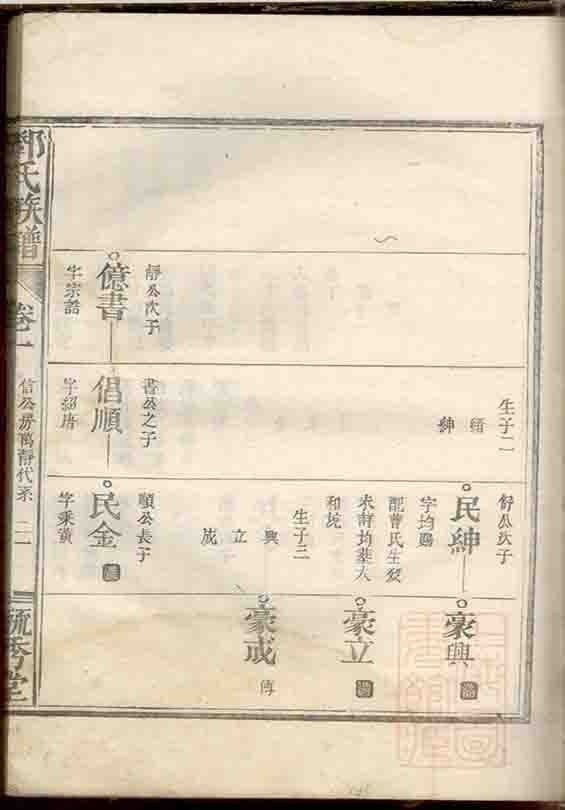 生子二
緒
紳
舒公次子
民紳
字均賜
配曹氏生歿
未詳均葬大
和坑
生子三
興
立
成
豪興
豪立
豪成
傳
靜公次子
億書
字宗誥
書公之子
倡順
字紹唐
順公長子
民金
字秉黄
氏族譜
卷一
信公房萬靜代系
毓秀堂